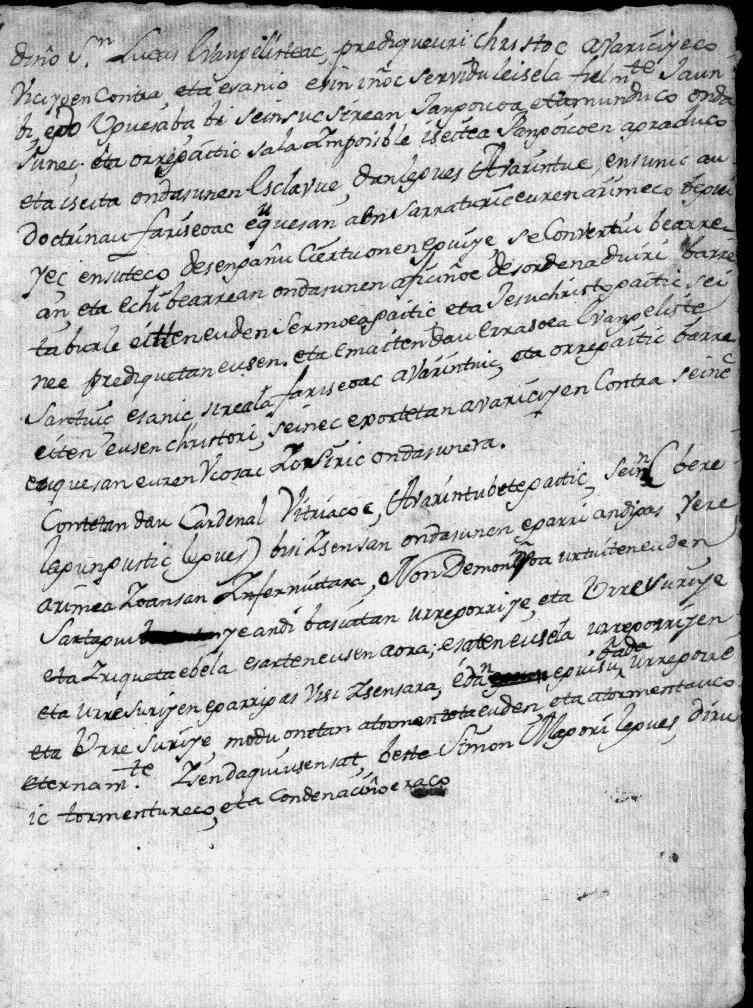 diño S.n Lucas Evangelisteac, prediqueuri Christoc avariciyeco
Viciyoen Contra, eta esanio esin iñoc serviduleisela fielm.te Jaun
bi edo Uguesaba bi seinsuc sirean Jangoicoa, eta munduco onda
sunec; eta orregaitic sala imposible iseitea Jangoicoen agraduco
eta iseita ondasunen Esclavue, danlegues Avarintue, ensunic au
Doctrinau fariseoac euquesan abni sarraturic euren arimeco begui
yec ensuteco desengañu Ciertuonen eguiye, se Convertiu bearre
an eta echi bearrean ondasunen aficiñoe desordenaduiri barre
ta burle eitten euden Sermoegaitic eta Jesuchristogaitic sei
nec prediquetan eusen. eta emaiten dau errasoea Evangeliste
Santuic esanic, sireala fariseoac avarintuic, eta orregaitic barre
eiten eusen Christori, seinec exortetan avariciyen Contra seinc
euquesan euren Viosac Zorsiric ondasunera.
Contetan dau Cardenal Vitriacoe, Avarintu bategaitic, sein.C bere
lagungustic legues) bisi Izensan ondasunen egarri andigas yere
arimea Zoansan Infernuttara, Non Demoniñoa urtuiten euden
Sartagui yeandi basuatan urregorriye, eta Urresuriye
eta Iriquata ebela esarten eusen aora; esaten eusela urregorriyen
eta urresuriyen egarrigas Visi Izensara, edan eguisu bada urregorie
eta Urre Suriye, modu onetan atormentetaeuden, eta atormentauco
eternam.te Izendaquiusensat, beste Simon Magori legues, diru
ic tormentureco, eta Condenaciñoeraco